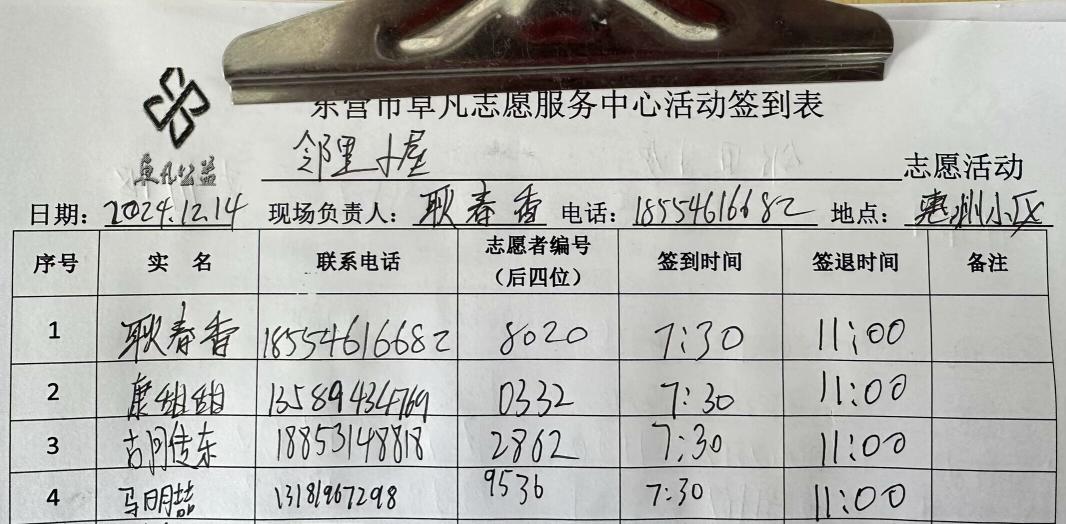 东营市卓凡志愿服务中心活动签到表
卓凡公益
邻里小屋 志愿活动
日期：2024.12.14 现场负责人：耿春香 电话：18554616682 地点：惠州小区
序号 实 名 联系电话 志愿者编号（后四位） 签到时间 签退时间 备注
1 耿春香 18554616682 8020 7:30 11:00
2 康甜甜 13589434769 0332 7:30 11:00
3 18853148818 2862 7:30 11:00
4 马明喆 13181967298 9536 7:30 11:00